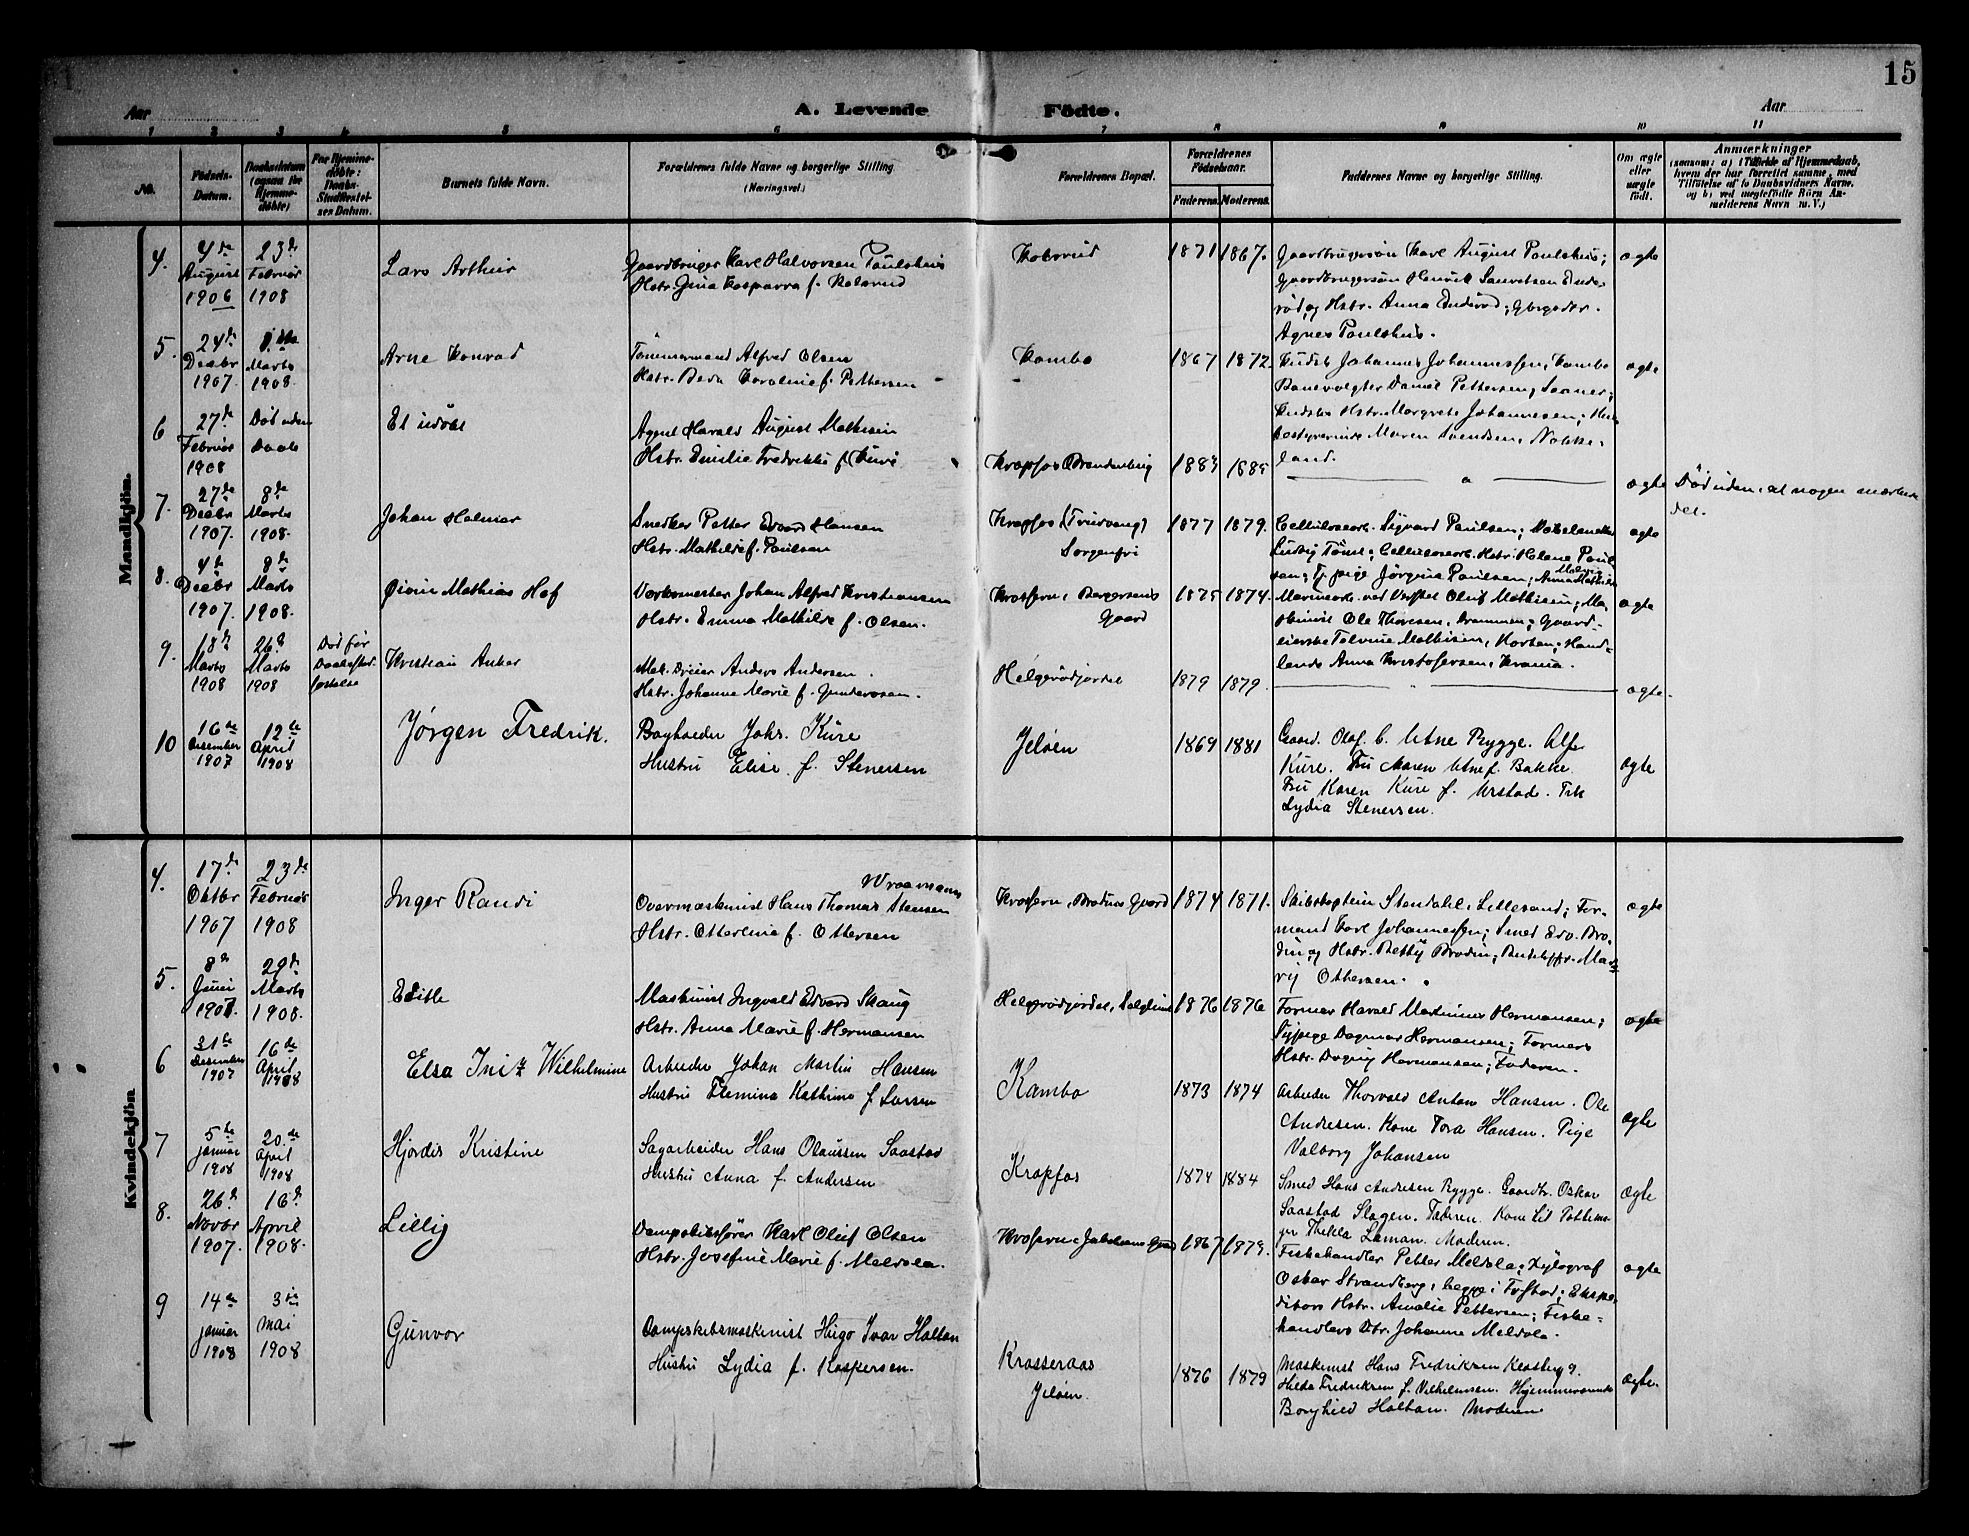 15
Aar
A. Levende
Födte.
Aar
1 2 3 4 5 6 7 8 9 10 11
No.
Födsels-
Datum.
Daabsdatum
(ogsaa for
Hjemme-
döbte)
For Hjemme-
döbte:
Daabs-
Stadfæstel-
ses Datum.
Barnets fulde Navn.
Forældrenes fulde Navne og borgerlige Stilling
(Næringsvei.)
Forældrenes Bopæl.
Forældrenes
Födselsaar.
Faderens. Moderens.
Faddernes Navne og borgerlige Stilling.
Om ægte
eller
uægte
födt.
Anmærkninger
(saasom: a) (Tilfælde af Hjemmedaab,
hvem der har forrettet samme, med
Tilföielse af to Daabsvidners Navne,
og b) ved uægtefödte Börn An-
melderens Navn m. V.)
Mandkjön.
4. 4de August 1906
23de Februar 1908
Lars Arthur
Gaardbruger Karl Halvorsen Paulshus
Hstr. Gina Kasparra f. Kolsrud
1871 1867.
Gaardbrugersön Karl August Paulshus;
Gaardbrugersön Henrik Lauretsen Ende-
röd, og Hstr. Anna Enderöd; Gbrgerdtr.
Agnes Paulshus.
ægte
5. 24de Decbr 1907
Marts 1908.
Arne Konrad
Tömmermand Alfred Olsen
Hstr. Beda Karoline f. Pettersen
Kambo
1867 1872.
Kudsk Johannes Johannessen, Kambo
Banevogter Daniel Pettersen, Saaner;
Kudsks Hstr. Margrete Johannesen; Hus-
bestyrerinde Maren Svendsen, Nokke-
land.
ægte
6 27de Februar 1908
Död uden Daab
Et udöbt
Agent Harald August Mathisen
Hstr. Emilie Fredrikke f. Kure
Krapfos (Brandenburg
1885
ægte
Död uden, at nogen mærkede
det.
7. 27de Decbr 1907.
8de Marts 1908.
Johan Halmar
Snedker Petter Edvard Hansen
Hstr. Mathilde f. Paulsen
Krapfos, (Trudvang)
Sorgenfri
1877 1879.
Cellulosearb. Sigvard Paulsen;
Ludvig Tömt; Cellulosearb. Hstr. Helene Paul-
sen; Tj. pige Jörgine Paulsen; Anna Mathilde
ægte
8. 4de Decbr 1907.
8de Marts 1908.
Öivin Mathias Hof
Værksmester Johan Alfred Kristiansen
Hstr. Emma Mathilde f. Olsen.
Krosfern, Børgersens
Gaard
1875 1874.
Marinearb. ved Verftet Oluf Mathisen; Ma-
skinist Ole Thoresen, Drammen; Gaard-
eierske Talvine Mathisen, Horten; Hand-
lende Anna Kristofersen, Krania.
ægte
9. 18de Marts 1908
26de Marts 1908
Död för
Daabsstad-
fæstelse
Kristian Anker
Met. Dreier Anders Andersen.
Hstr. Johanne Marie f. Gundersen.
Helgerödjordet
1879 1879.
ægte.
10 16de Desember 1907
12te April 1908
Jørgen Fredrik.
Bogholder Johs. Kure
Hustru Elise f. Stenersen
Jeløen
1869 1881
Gaard. Olaf C. Utne Rygge. Alf
Kure. Fru Maren Utne f. Bakke.
Fru Karen Kure f. Urstad. Frk
Lydia Stenersen.
ægte
Kvindekjön
4. 17de Oktbr 1907
23de Februar 1908
Inger Randi
Wraamann
Overmaskinist Hans Thomas Stensen
Hstr. Otterline f. Ottersen
Krosfern, Brodins Gaard
1874 1871.
Skibskaptein Stendahl, Lillesand; For-
mand Karl Johannessen; Smed Edv. Bro-
din, og Hstr. Betty Brodin;
Ottersen.
ægte
5. 8de Juni 1907
29de Marts 1908.
Edith
Maskinist Ingvald Edvard Skaug
Hstr. Anna Marie f. Hermansen
Helgerödjordet, Solglimt
1876 1876
Former Harald Martinius Hermansen;
Sypige Dagmar Hermansen; Formers
Hstr. Dagny Hermansen; Faderen.
ægte
6 31te Desember 1907
16de April 1908
Elsa Wilhelmine
Arbeider Johan Martin Hansen
Hustru Flemina Kathrine f Larsen
Kambo
1873 1874
Arbeider Thorvald Anton Hansen. Ole
Andresen. Kone Tora Hansen. Pige
Valborg Johansen
ægte
7 5te januar 1908
20.de April 1908
Hjordis Kristine
Sagarbeider Hans Olaussen Saastad
Hustru Anna f. Andersen
Krapfos
1874 1884
Smed Hans Andresen Rygge. Gaardbr. Oskar
Saastad Slagen. Faderen.
Thekla Laman. Moderen.
ægte
8. 26de Novbr 1907.
16de April 1908.
Lillig
Dampskibsförer Karl Oluf Olsen
Hstr. Josefine Marie f. Meldola.
1867 1879.
Fiskehandler Petter Meldola; Xylograf
Oskar Strandberg, begge i Frstad; Ekspe-
ditörs Hstr. Amalie Pettersen; Fiske-
handlers Dtr. Johanne Meldola.
ægte
9 14de januar 1908
3die mai 1908
Gunvor
Dampskibsmaskinist Hugo Ivar Holtan
Hustru Lydia f. Kaspersen.
Krosseraas
Jeløen.
1876 1879
Maskinist Hans Fredriksen
Hilda Fredriksen f. Vilhelmsen. Hjemmeværende
Borghild Holtan. Moderen
ægte.